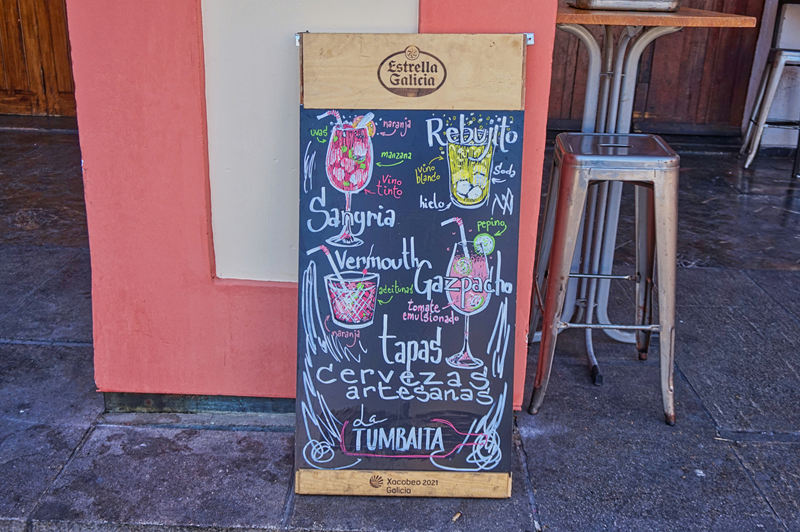 Estrella
Galicia
uvas
naranja
manzana
vino
tinto
Sangria
Rebujito
vino
blanco
Soda
hielo
Vermouth
aceitunas
naranja
pepino
Gazpacho
tomate
emulsionado
tapas
cervezas
artesanas
La
TUMBAITA
Xacobeo 2021
Galicia